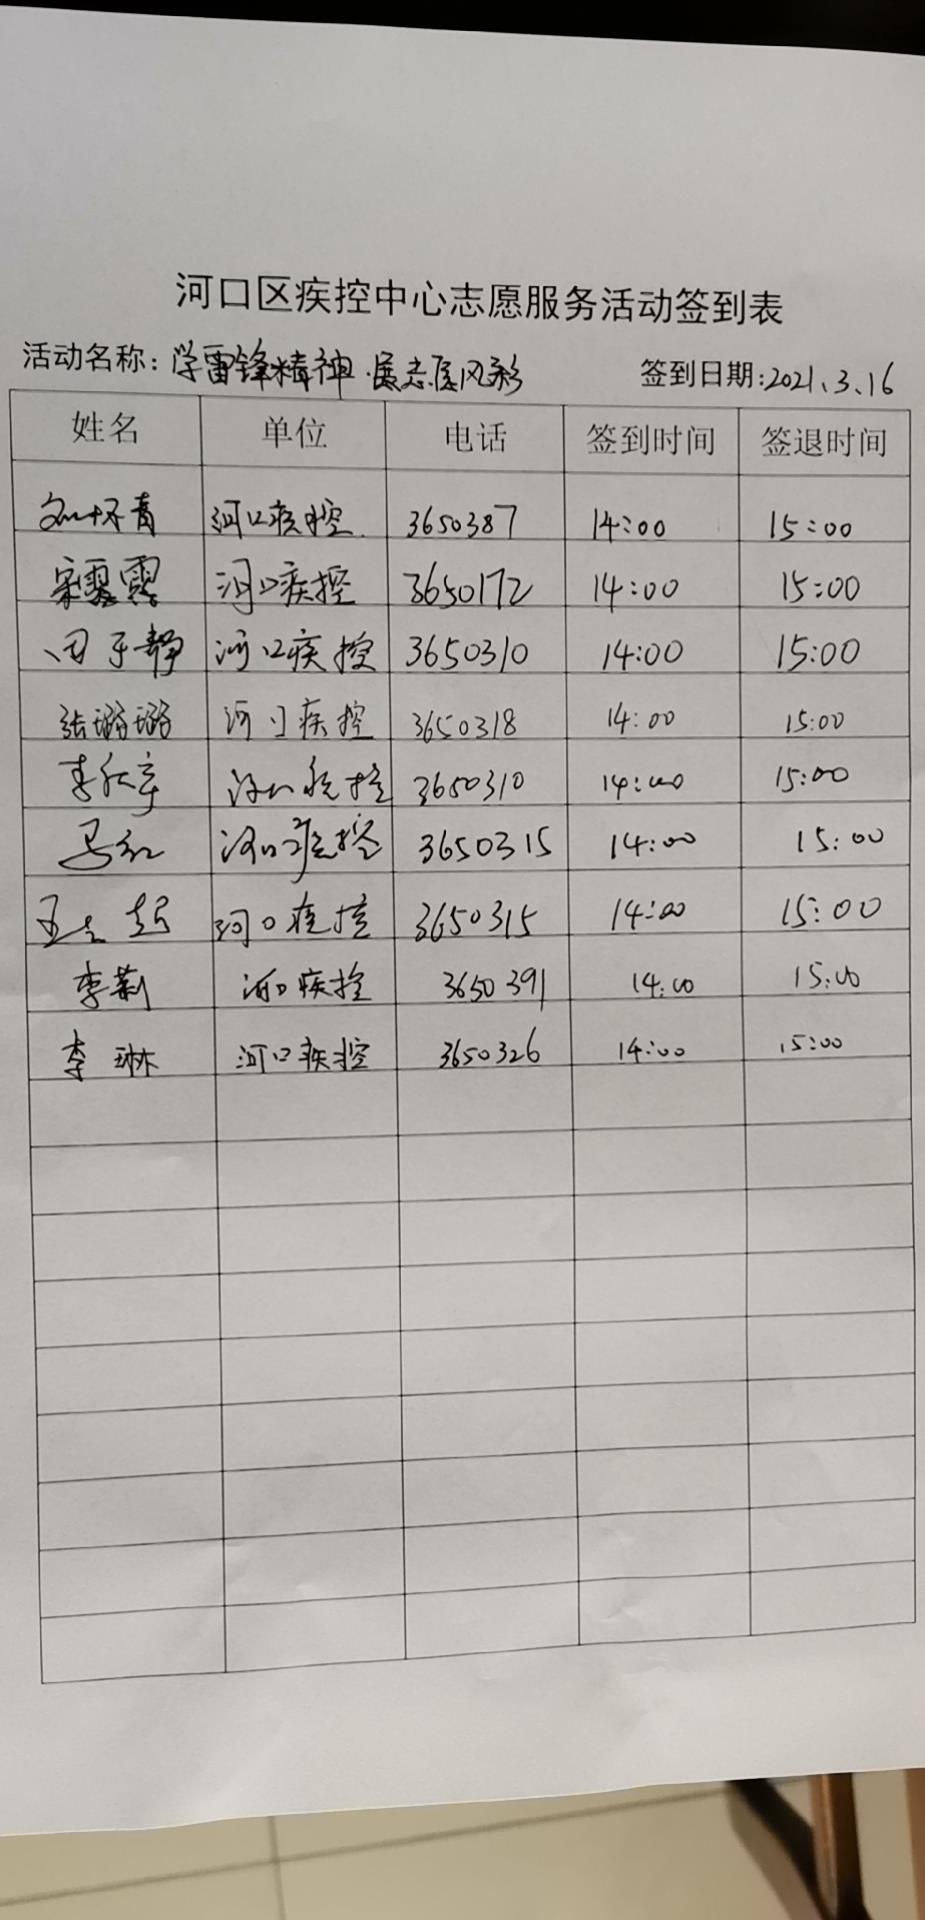 河口区疾控中心志愿服务活动签到表
活动名称:学雷锋精神·展志愿风彩 签到日期:2021.3.16
姓名 单位 电话 签到时间 签退时间
河口疾控 3650387 14:00 15:00
宋露露 河口疾控 3650172 14:00 15:00
田于静 河口疾控 3650310 14:00 15:00
张璐璐 河口疾控 3650318 14:00 15:00
李 河口疾控 3650310 14:00 15:00
马红 河口疾控 3650315 14:00 15:00
河口疾控 3650315 14:00 15:00
李莉 河口疾控 3650391 14:00 15:00
李琳 河口疾控 3650326 14:00 15:00